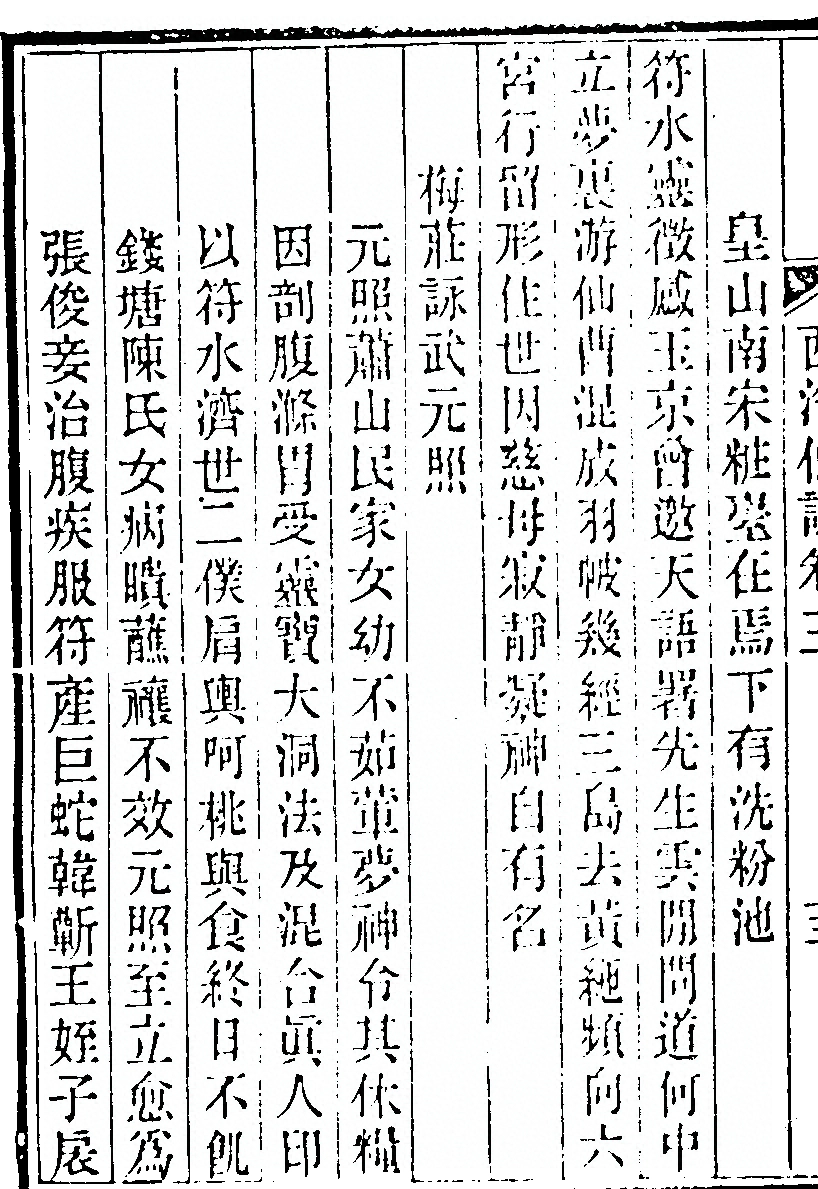 西 卷三 三
皇山南宋粧臺在焉下有洗粉池
符水靈徵感玉京曾邀天語署先生雲閒問道何中
立夢裏游仙曲混成羽帔幾經三島去黃絁頻向六
宮行留形住世因慈母寂靜凝神自有名
梅莊詠武元照
元照蕭山民家女幼不茹葷夢神令其休糧
因剖腹滌胃受靈寶大洞法及混合眞人印
以符水濟世二僕肩輿呵桃與食終日不飢
錢塘陳氏女病瞶蘸禳不效元照至立愈爲
張俊妾治腹疾服符產巨蛇韓蘄王姪子扆